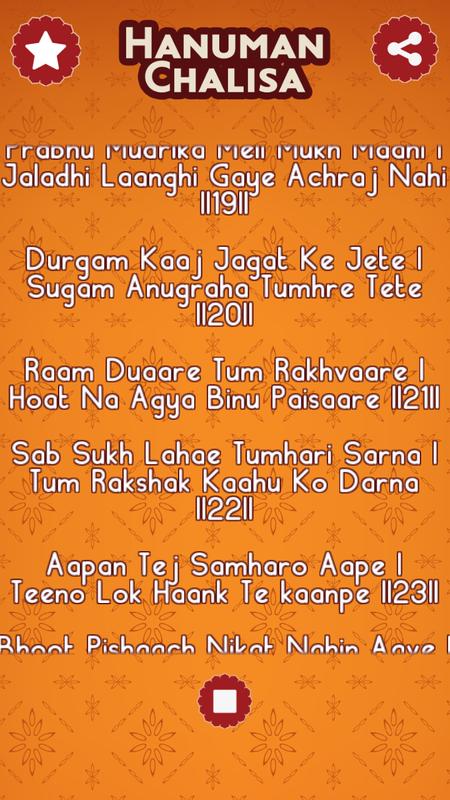 HANUMAN
CHALISA
Prabhu Mudrika Meli Mukh Maahi |
Jaladhi Laanghi Gaye Achraj Nahi
||19||
Durgam Kaaj Jagat Ke Jete |
Sugam Anugraha Tumhre Tete
||20||
Raam Duaare Tum Rakhvaare |
Hoat Na Agya Binu Paisaare ||21||
Sab Sukh Lahae Tumhari Sarna |
Tum Rakshak Kaahu Ko Darna
||22||
Aapan Tej Samharo Aape |
Teeno Lok Haank Te kaanpe ||23||
Bhoot Pishaach Nikat Nahin Aave |